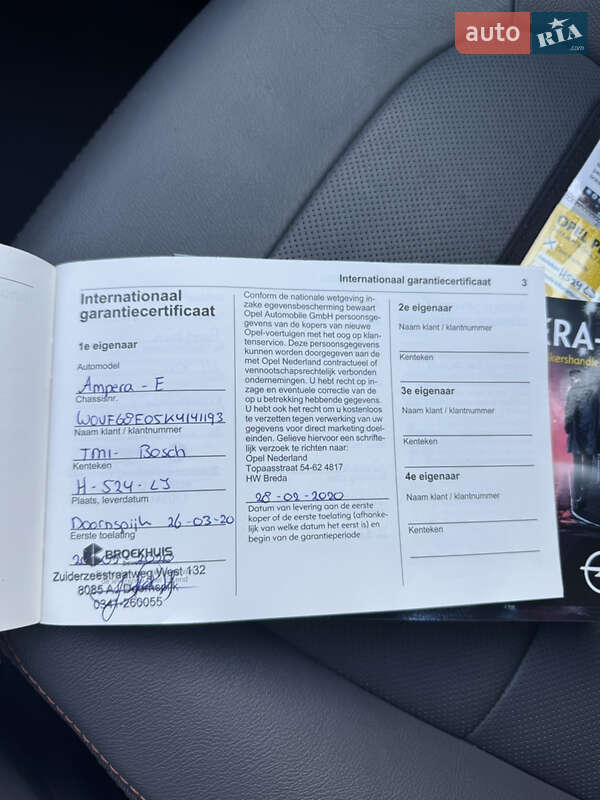 auto RIA .com
Internationaal garantiecertificaat 3
Internationaal
garantiecertificaat
1e eigenaar
Automodel
Ampera - E
Chassisnr.
W0VF68E05K4141193
Naam klant / klantnummer
TMI- Bosch
Kenteken
H-524-LJ
Plaats, leverdatum
Doornspijk 26-03-20
Eerste toelating
BROEKHUIS
Zuiderzeestraatweg West 132
8085 AJ Doornspijk
0341-260055
Conform de nationale wetgeving in-
zake egevensbescherming bewaart
Opel Automobile GmbH persoonsge-
gevens van de kopers van nieuwe
Opel-voertuigen met het oog op klan-
tenservice. Deze persoonsgegevens
kunnen worden doorgegeven aan de
met Opel Nederland contractueel of
vennootschapsrechtelijk verbonden
ondernemingen. U hebt recht op in-
zage en eventuele correctie van de
op u betrekking hebbende gegevens.
U hebt ook het recht om u kosteloos
te verzetten tegen verwerking van uw
gegevens voor direct marketing doel-
einden. Gelieve hiervoor een schrifte-
lijk verzoek te richten naar:
Opel Nederland
Topaasstraat 54-62 4817
HW Breda
28-02-2020
Datum van levering aan de eerste
koper of de eerste toelating (afhanke-
lijk van welke datum het eerst is) en
begin van de garantieperiode
2e eigenaar
Naam klant / klantnummer
Kenteken
3e eigenaar
Naam klant / klantnummer
Kenteken
4e eigenaar
Naam klant / klantnummer
Kenteken
OPEL